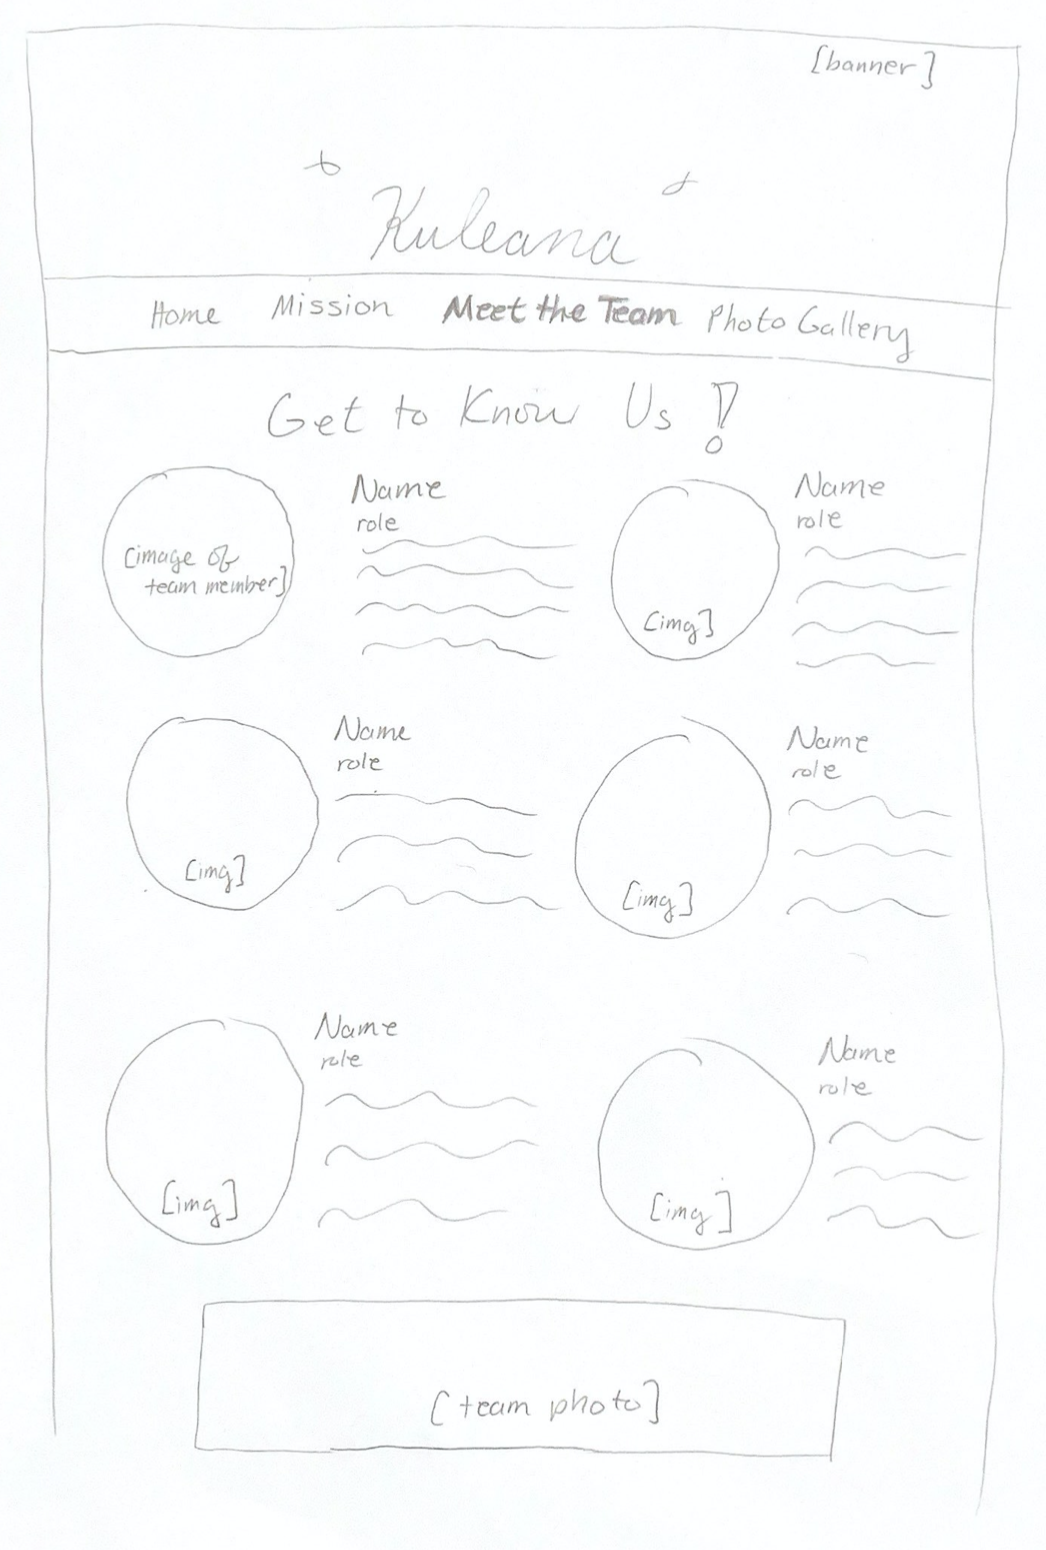 [banner]
Kuleana
Home Mission Meet the Team Photo Gallery
Get to Know Us !
[image of
team member]
Name
role
[img]
Name
role
[img]
Name
role
[img]
Name
role
[img]
Name
role
[img]
Name
role
[team photo]